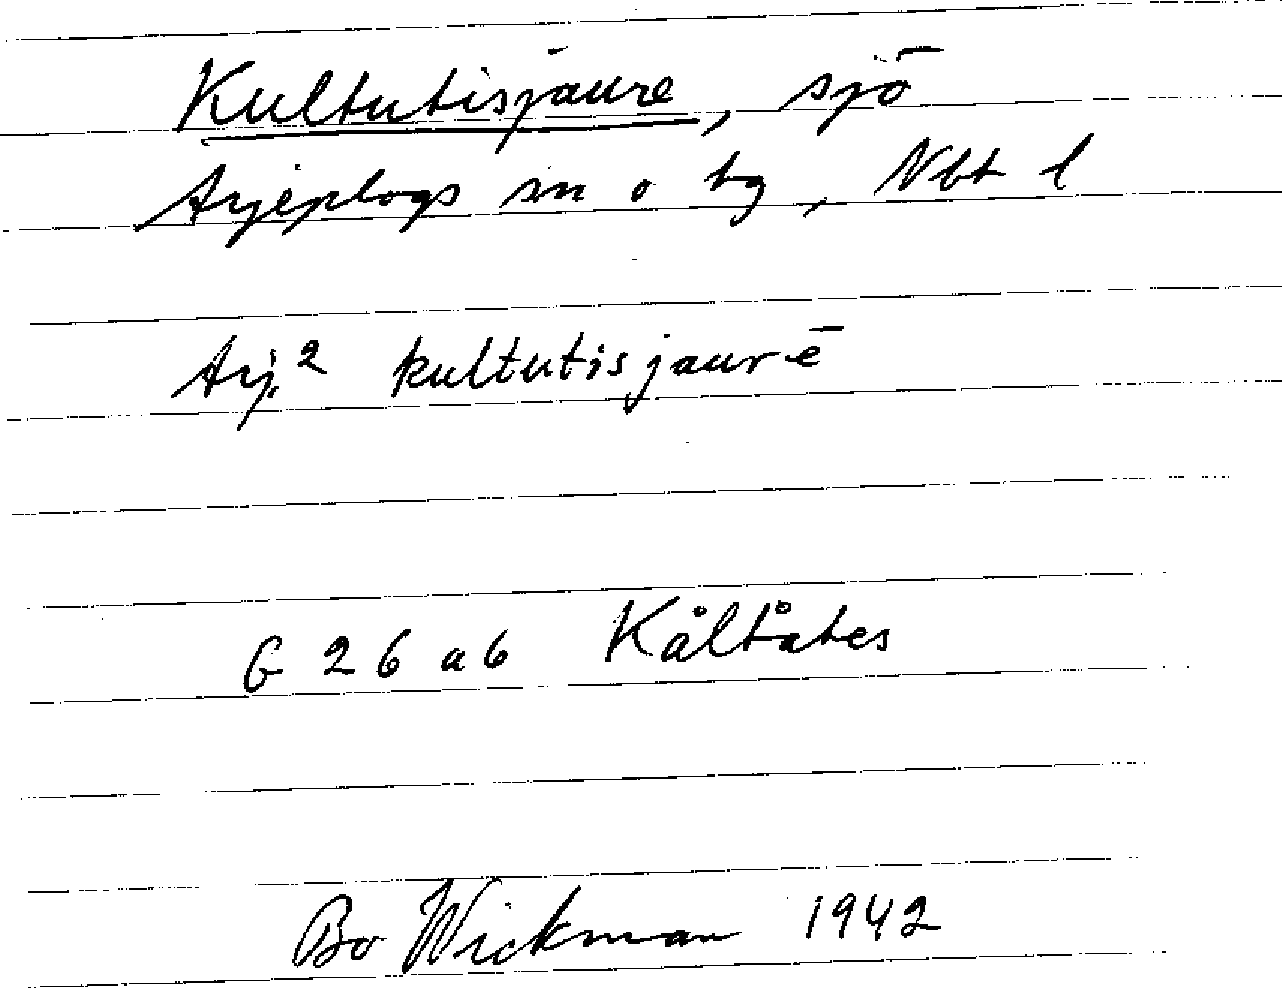 Kultutisjaure, sjö
Arjeplogs sn o tg, Nbt l
Arj.2 kultutisjaurē
G 26 a 6 Kåltåtes
Bo Wickman 1942